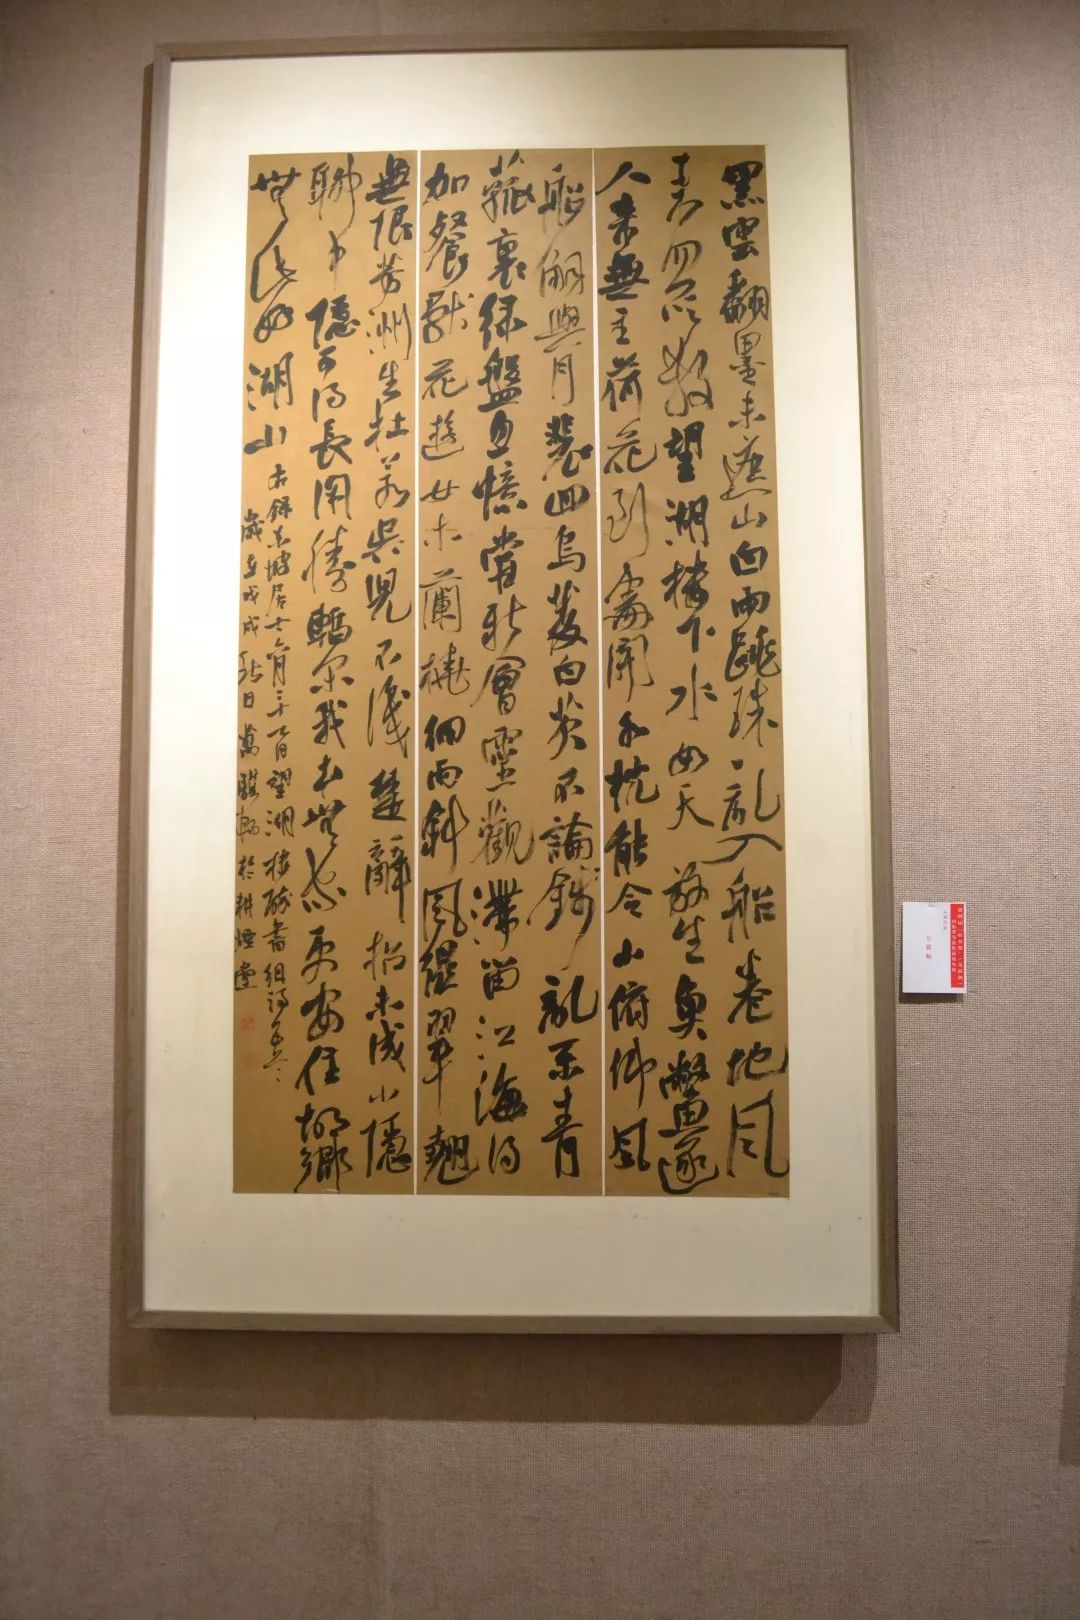 黑雲翻墨未遮山白雨跳珠亂入船卷地風
来忽吹散望湖樓下水如天放生魚鱉逐
人来無主荷花到處開水枕能令山俯仰風
船解與月裴回烏菱白芡不論錢亂系青
菰裹緑盤忽憶嘗新會靈觀滯留江海得
加餐獻花遊女木蘭橈細雨斜風濕翠翹
無限芳洲生杜若吳兒不識楚辭招未成小隱
聊中隱可得長閑勝暫閑我本無家更安住故鄉
無此好湖山
右録東坡居士六月二十七日望湖樓醉書組詩五首
歲在戊戌秋日萬騏 於耕煙堂